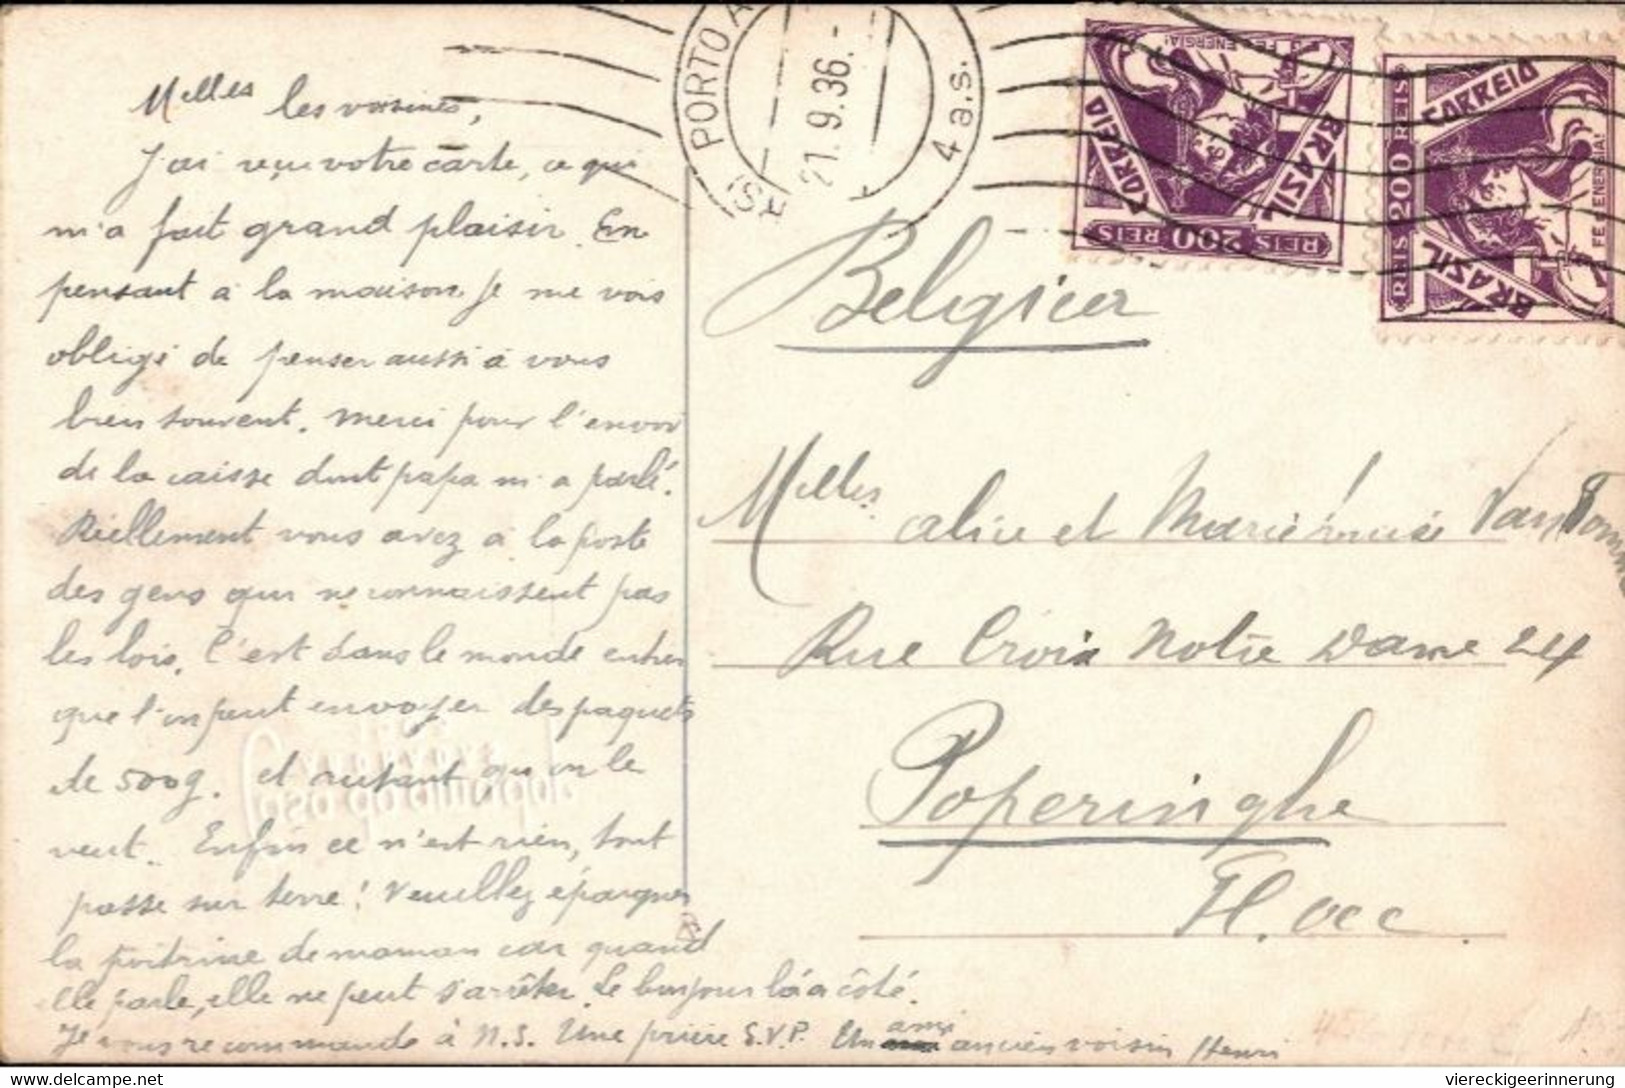 Melles les voisines,
J'ai reçu votre carte, ce qui
m'a fait grand plaisir. En
pensant à la maison je me vois
obligé de penser aussi à vous
bien souvent. Merci pour l'envoi
de la caisse dont papa m'a parlé.
Réellement vous avez à la poste
des gens qui ne connaissent pas
les lois. C'est dans le monde entier
que l'on peut envoyer des paquets
de 500g. et autant qu'on le
veut. Enfin ce n'est rien, tout
passe sur terre! Veuillez épargner
la poitrine de maman car quand
elle parle, elle ne peut s'arrêter. Le bonjour là à côté.
Je vous recommande à N.S. Une prière S.V.P. Un ami ancien voisin Henri
PORTO A
21.9.36.-
4 a.s.
CORREIO
BRASIL
REIS 200 REIS
FE E ENERGIA!
CORREIO
BRASIL
REIS 200 REIS
FE E ENERGIA!
Belgica
Melles Alice et Marie Louise Van Tomme
Rue Croix Notre Dame 24
Poperinghe
Fl. occ.
delcampe.net
viereckigeerinnerung